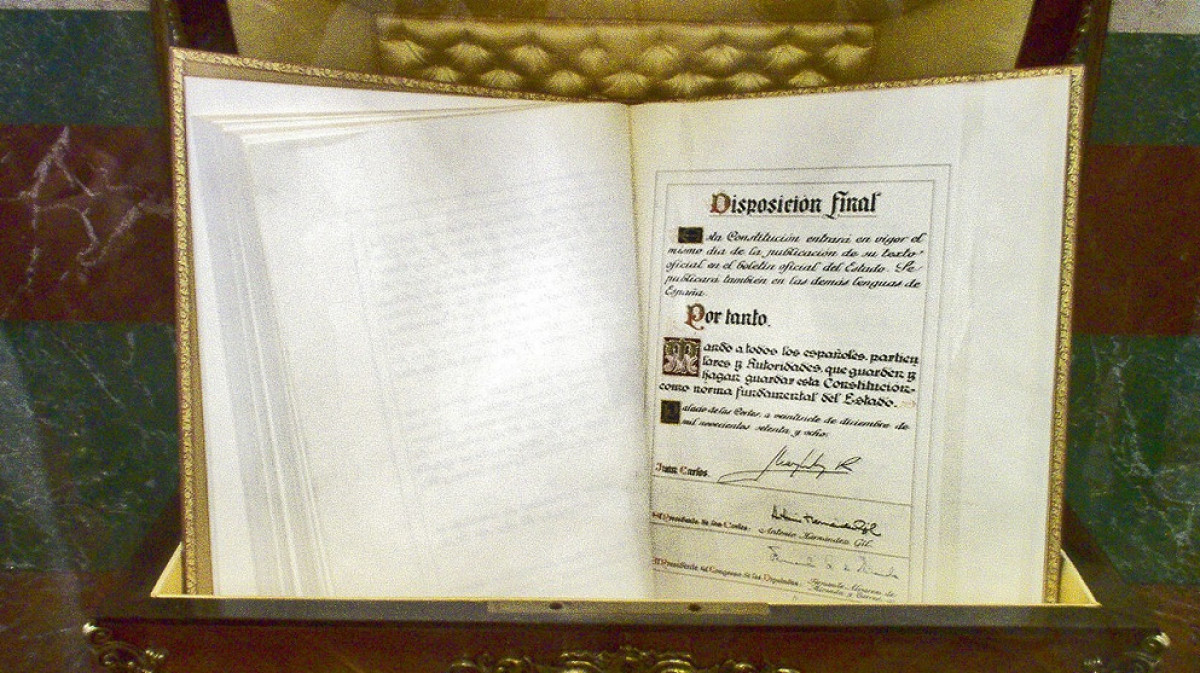 Disposición final
Esta Constitución entrará en vigor el
mismo día de la publicación de su texto
oficial en el boletín oficial del Estado. Se
publicará también en las demás lenguas de
España.
Por tanto,
Mando a todos los españoles, particu
lares y Autoridades, que guarden y
hagan guardar esta Constitución
como norma fundamental del Estado.
Palacio de las Cortes, a veintisiete de diciembre de
mil novecientos setenta y ocho.
Juan Carlos.
Juan Carlos R
Antonio Hernández Gil
El Presidente de las Cortes: Antonio Hernández Gil.
El Presidente del Congreso de los Diputados: Fernando Álvarez de
Miranda y Torres